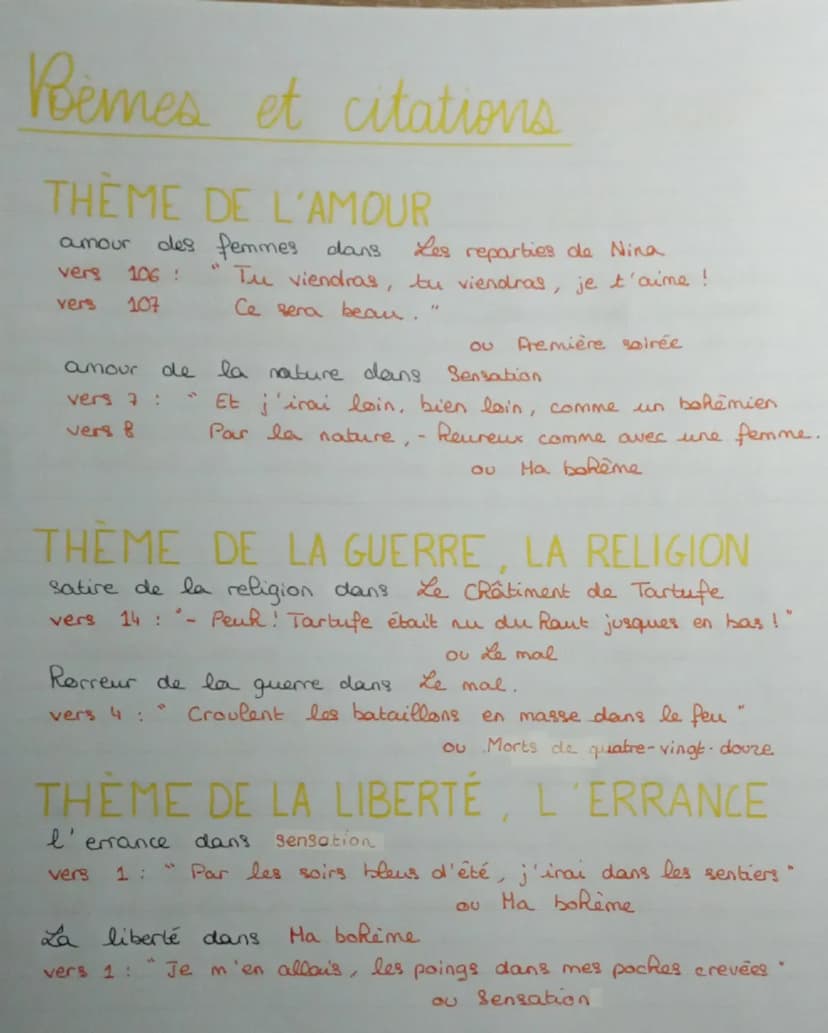 Poèmes et citations
THÈME DE L'AMOUR
amour des femmes dans Les reparties de Nina
vers 106 : " Tu viendras, tu viendras, je t'aime !
vers 107 Ce sera beau. "
ou Première soirée
amour de la nature dans Sensation
vers 7 : " Et j'irai loin, bien loin, comme un bohémien
vers 8 Par la nature, - Heureux comme avec une femme.
ou Ma bohème
THÈME DE LA GUERRE, LA RELIGION
satire de la religion dans Le Châtiment de Tartufe
vers 14 : "- Peuh ! Tartufe était nu du haut jusques en bas ! "
ou Le mal
Horreur de la guerre dans Le mal.
vers 4 : " Croulent les bataillons en masse dans le feu "
ou Morts de quatre-vingt-douze
THÈME DE LA LIBERTÉ, L'ERRANCE
l'errance dans sensation
vers 1 : " Par les soirs bleus d'été, j'irai dans les sentiers "
ou Ma bohème
La liberté dans Ma bohème
vers 1 : " Je m'en allais, les poings dans mes poches crevées "
ou Sensation